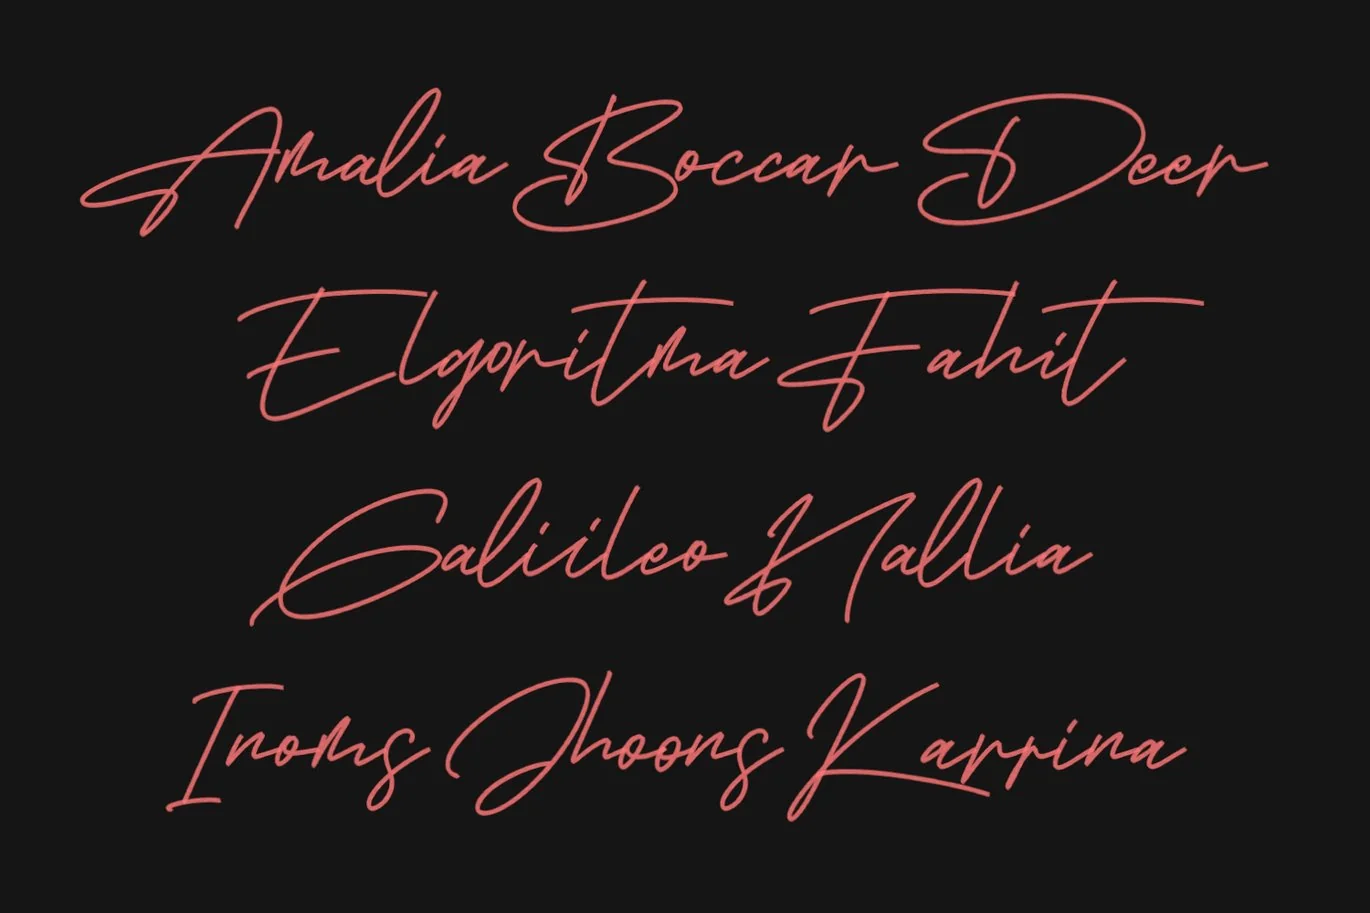 Amalia Boccar Deer
Elgoritma Fahit
Galiileo Hallia
Inoms Jhoons Karrina